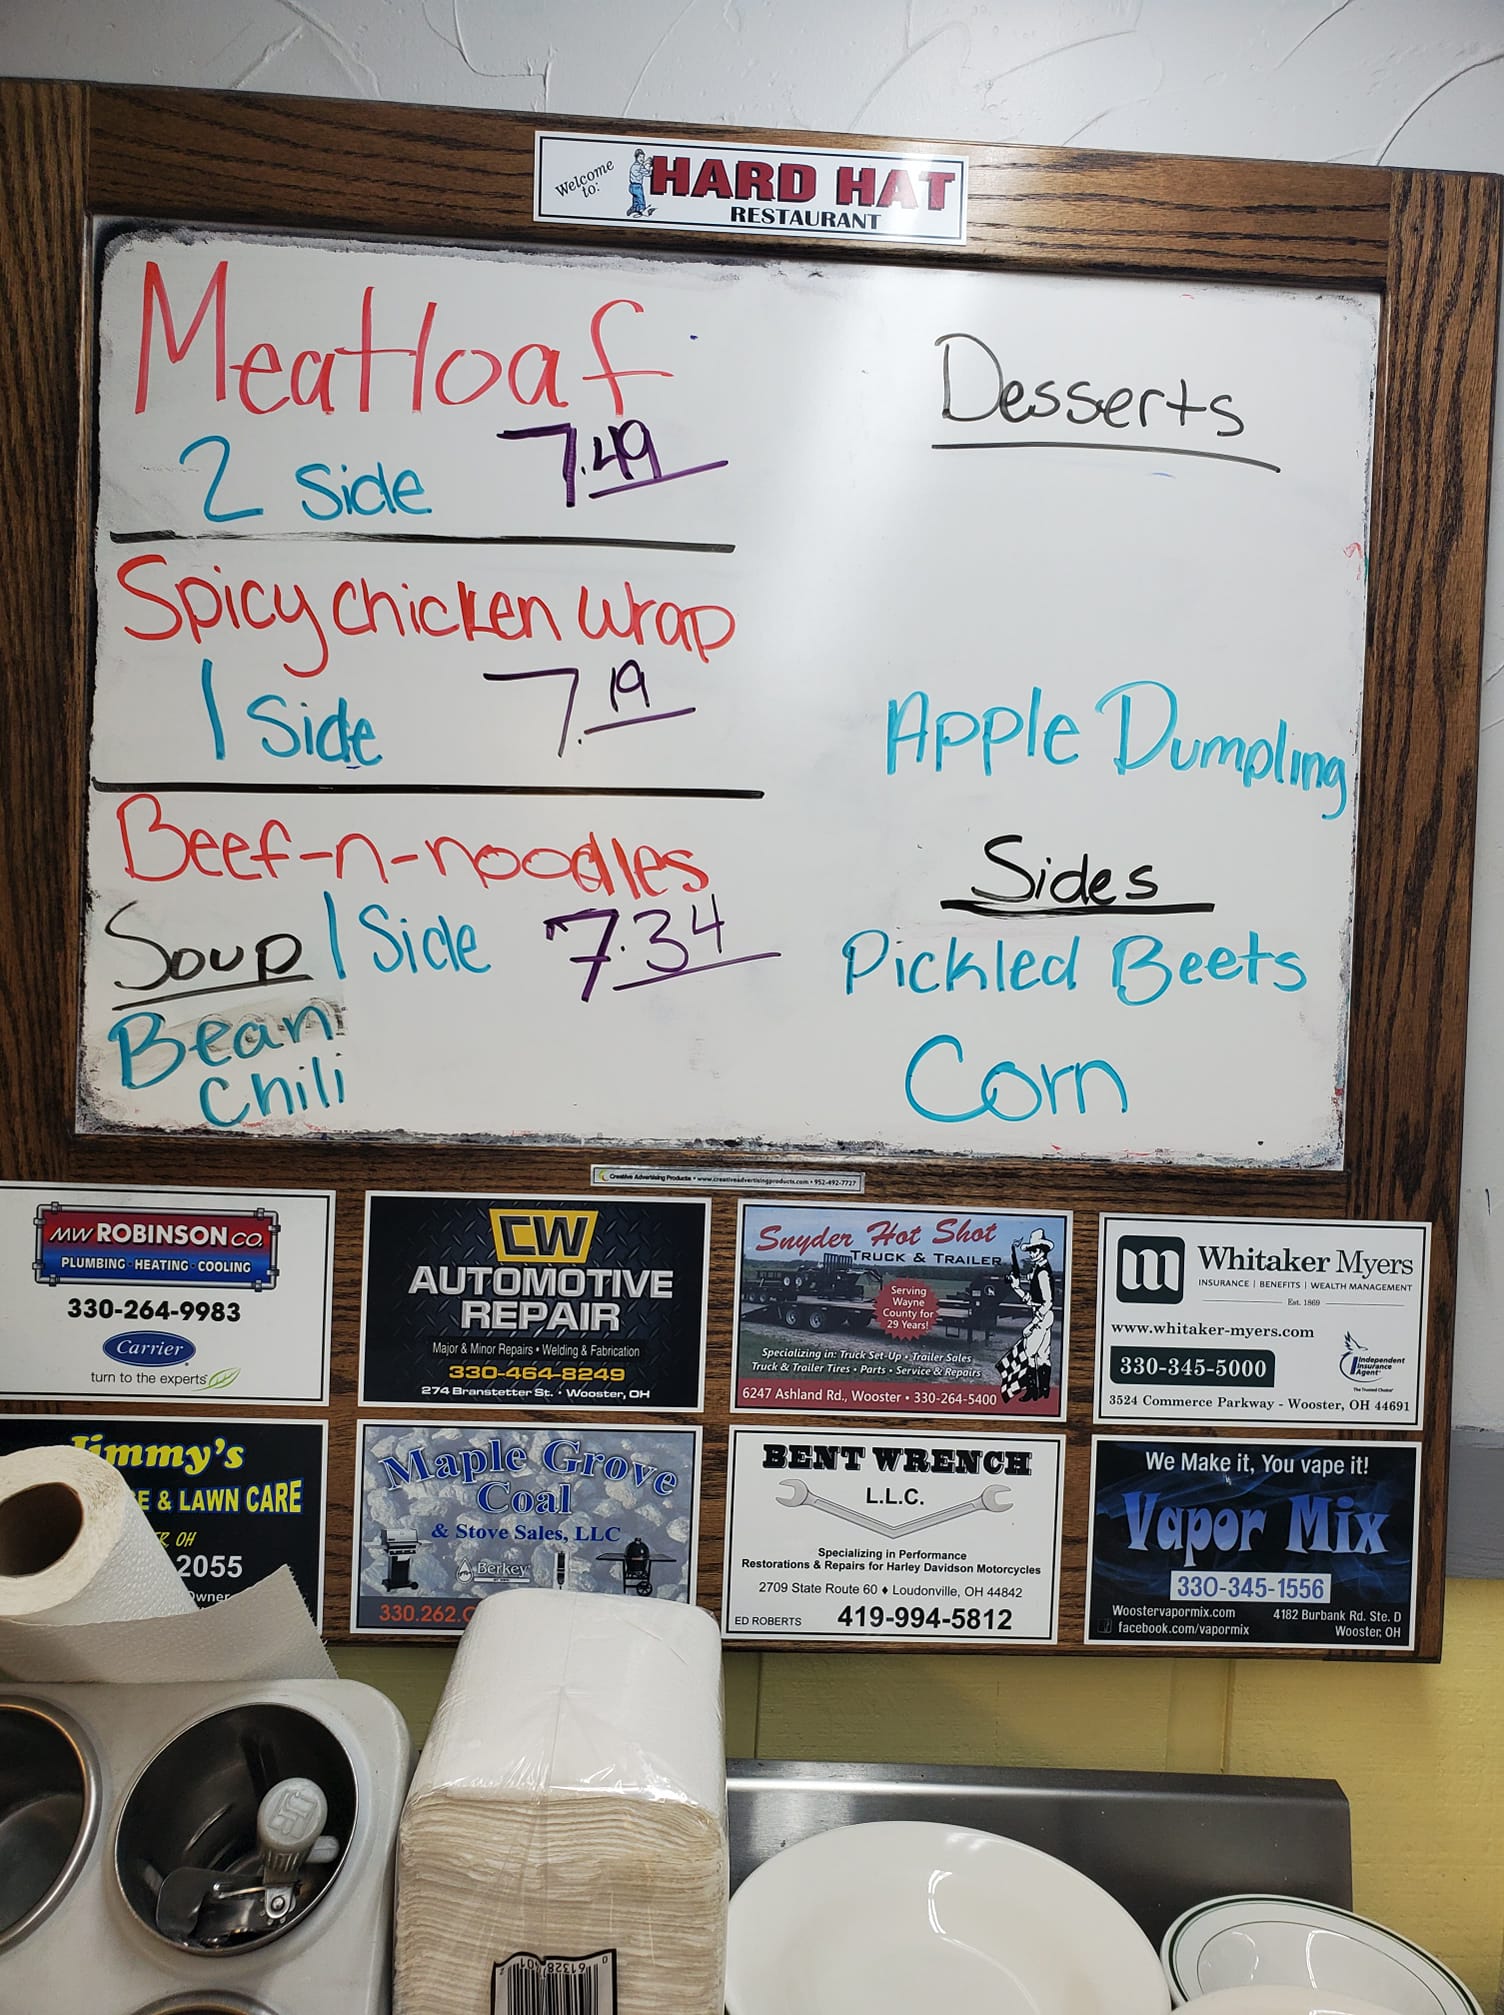 Welcome to:
HARD HAT
RESTAURANT
Meatloaf
2 Side 7.49
Spicy chicken wrap
1 Side 7.19
Beef-n-noodles
1 Side 7.34
Soup
Bean
Chili
Desserts
Apple Dumpling
Sides
Pickled Beets
Corn
Creative Advertising Products • www.creativeadvertisingproducts.com • 952-492-7727
MW ROBINSON CO.
PLUMBING · HEATING · COOLING
330-264-9983
Carrier
turn to the experts
CW
AUTOMOTIVE
REPAIR
Major & Minor Repairs • Welding & Fabrication
330-464-8249
274 Branstetter St. • Wooster, OH
Snyder Hot Shot
TRUCK & TRAILER
Serving
Wayne
County for
29 Years!
Specializing in: Truck Set-Up • Trailer Sales
Truck & Trailer Tires • Parts • Service & Repairs
6247 Ashland Rd., Wooster • 330-264-5400
m
Whitaker Myers
INSURANCE | BENEFITS | WEALTH MANAGEMENT
Est. 1869
www.whitaker-myers.com
330-345-5000
Independent
Insurance
Agent
3524 Commerce Parkway - Wooster, OH 44691
Jimmy's
E & LAWN CARE
OH
2055
Owner
Maple Grove
Coal
& Stove Sales, LLC
Berkey
330.262.
BENT WRENCH
L.L.C.
Specializing in Performance
Restorations & Repairs for Harley Davidson Motorcycles
2709 State Route 60 ♦ Loudonville, OH 44842
ED ROBERTS 419-994-5812
We Make it, You vape it!
Vapor Mix
330-345-1556
Woostervapormix.com 4182 Burbank Rd. Ste. D
facebook.com/vapormix Wooster, OH